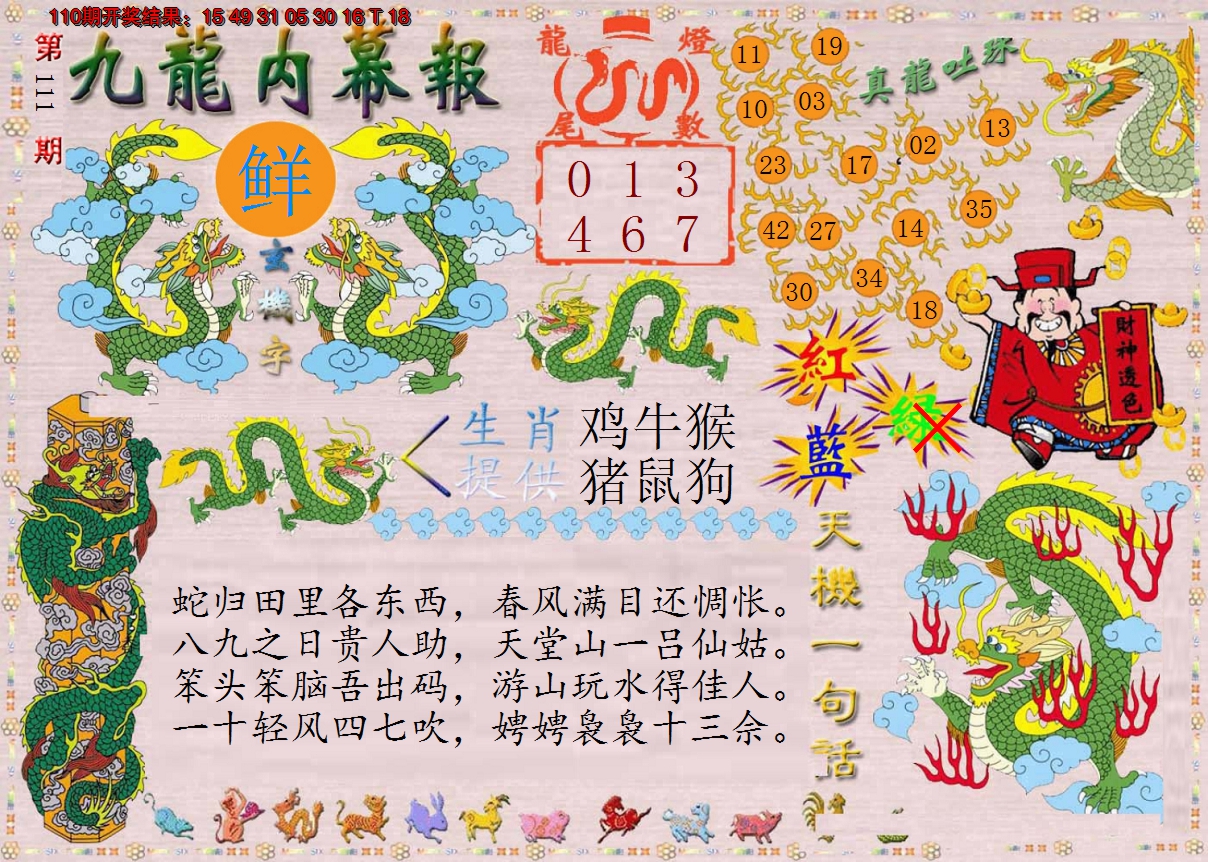 110期开奖结果：15 49 31 05 30 16 T 18
第111期
九龍内幕報
鲜
玄機字
龍燈
尾數
0 1 3
4 6 7
真龍吐珠
11 19
10 03
23 17 02 13
42 27 14 35
30 34 18
財神透色
紅
綠
藍
生肖 鸡牛猴
提供 猪鼠狗
天機一句话
蛇归田里各东西，春风满目还惆怅。
八九之日贵人助，天堂山一吕仙姑。
笨头笨脑吾出码，游山玩水得佳人。
一十轻风四七吹，娉娉袅袅十三余。